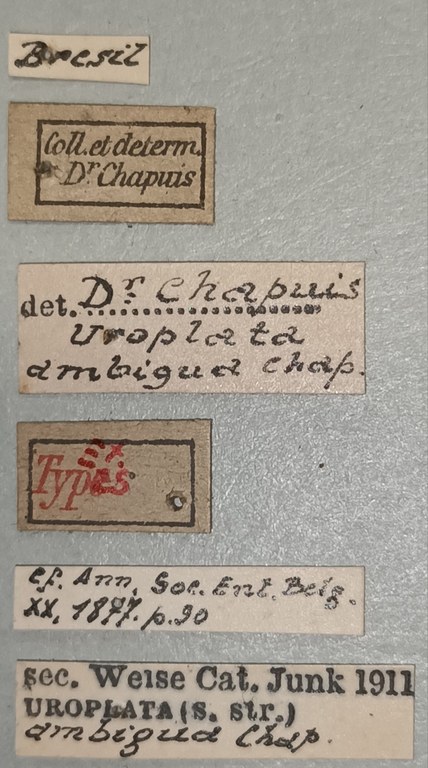 Bresil
Coll. et determ.
Dr Chapuis
det. Dr Chapuis
Uroplata
ambigua Chap.
Types
cf. Ann. Soc. Ent. Belg.
XX, 1877. p. 20
sec. Weise Cat. Junk 1911
UROPLATA (s. str.)
ambigua Chap.